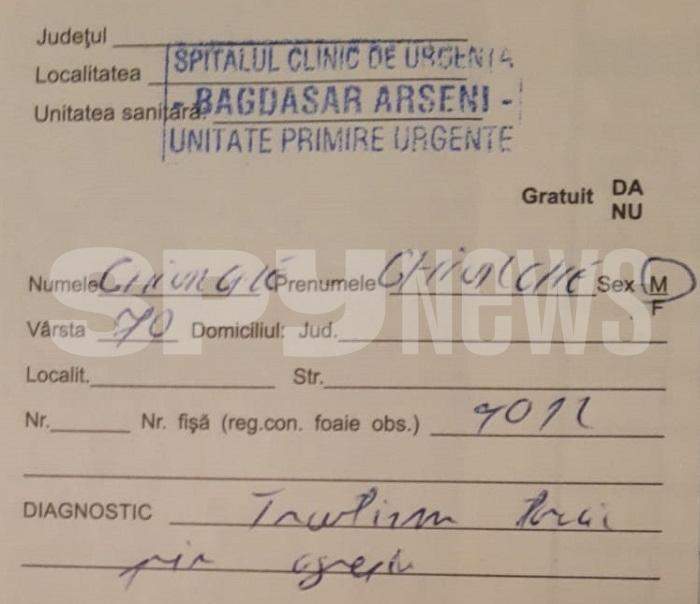 Județul
SPITALUL CLINIC DE URGENTA
Localitatea
Unitatea sanitară: - BAGDASAR ARSENI -
UNITATE PRIMIRE URGENTE
Gratuit DA
NU
SPYNEWS
Numele Prenumele Sex M
F
Vârsta 70 Domiciliul: Jud.
Localit. Str.
Nr. Nr. fișă (reg.con. foaie obs.)
DIAGNOSTIC
prin